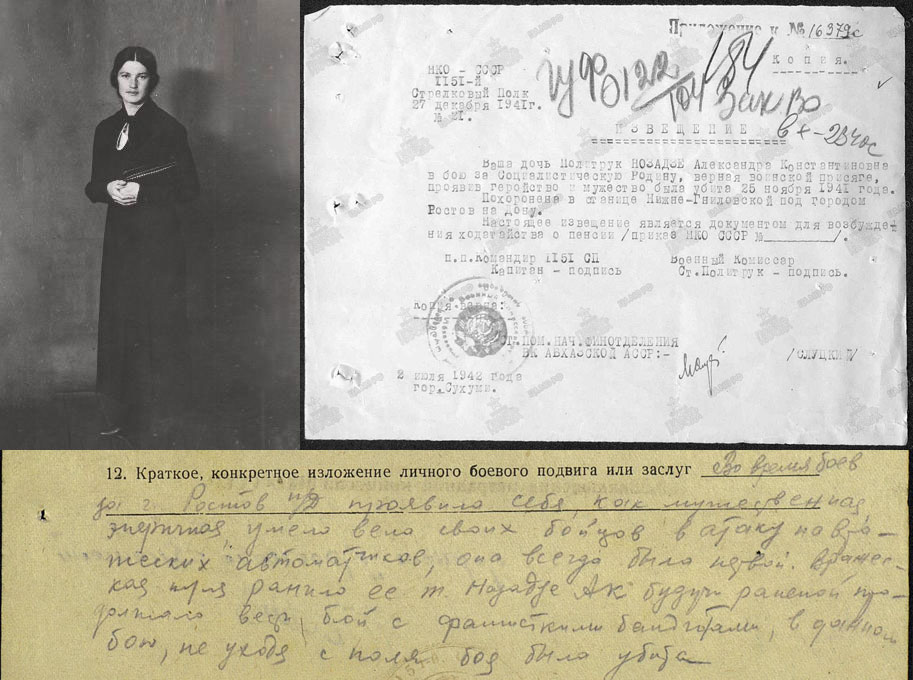 Приложение к № 16379с
Копия.
НКО - СССР
1151-й
Стрелковый Полк
27 декабря 1941г.
№ 21.
ИЗВЕЩЕНИЕ
Ваша дочь Политрук НОЗАДЗЕ Александра Константиновна
в бою за Социалистическую Родину, верная воинской присяге,
проявив геройство и мужество была убита 25 ноября 1941 года.
Похоронена в станице Нижне-Гниловской под городом
Ростов на Дону.
Настоящее извещение является документом для возбужде-
ния ходатайства о пенсии /приказ НКО СССР №________/.
п.п.Командир 1151 СП Военный Комиссар
Капитан - подпись Ст.Политрук - подпись.
Копия верна:
СТ.ПОМ.НАЧ.ФИНОТДЕЛЕНИЯ
ВК АБХАЗСКОЙ АССР:- /СЛУЦКИЙ/
2 июля 1942 года
гор.Сухуми.
12. Краткое, конкретное изложение личного боевого подвига или заслуг Во время боев
за г. Ростов н/Д проявила себя, как мужественная,
энергичная, умело вела своих бойцов в атаку на вра-
жеских автоматчиков, она всегда была первой. Вражес-
кая пуля ранила ее т. Нозадзе А К будучи раненой про-
должала вести бой с фашисткими бандитами, в данном
бою, не уходя с поля боя была убита